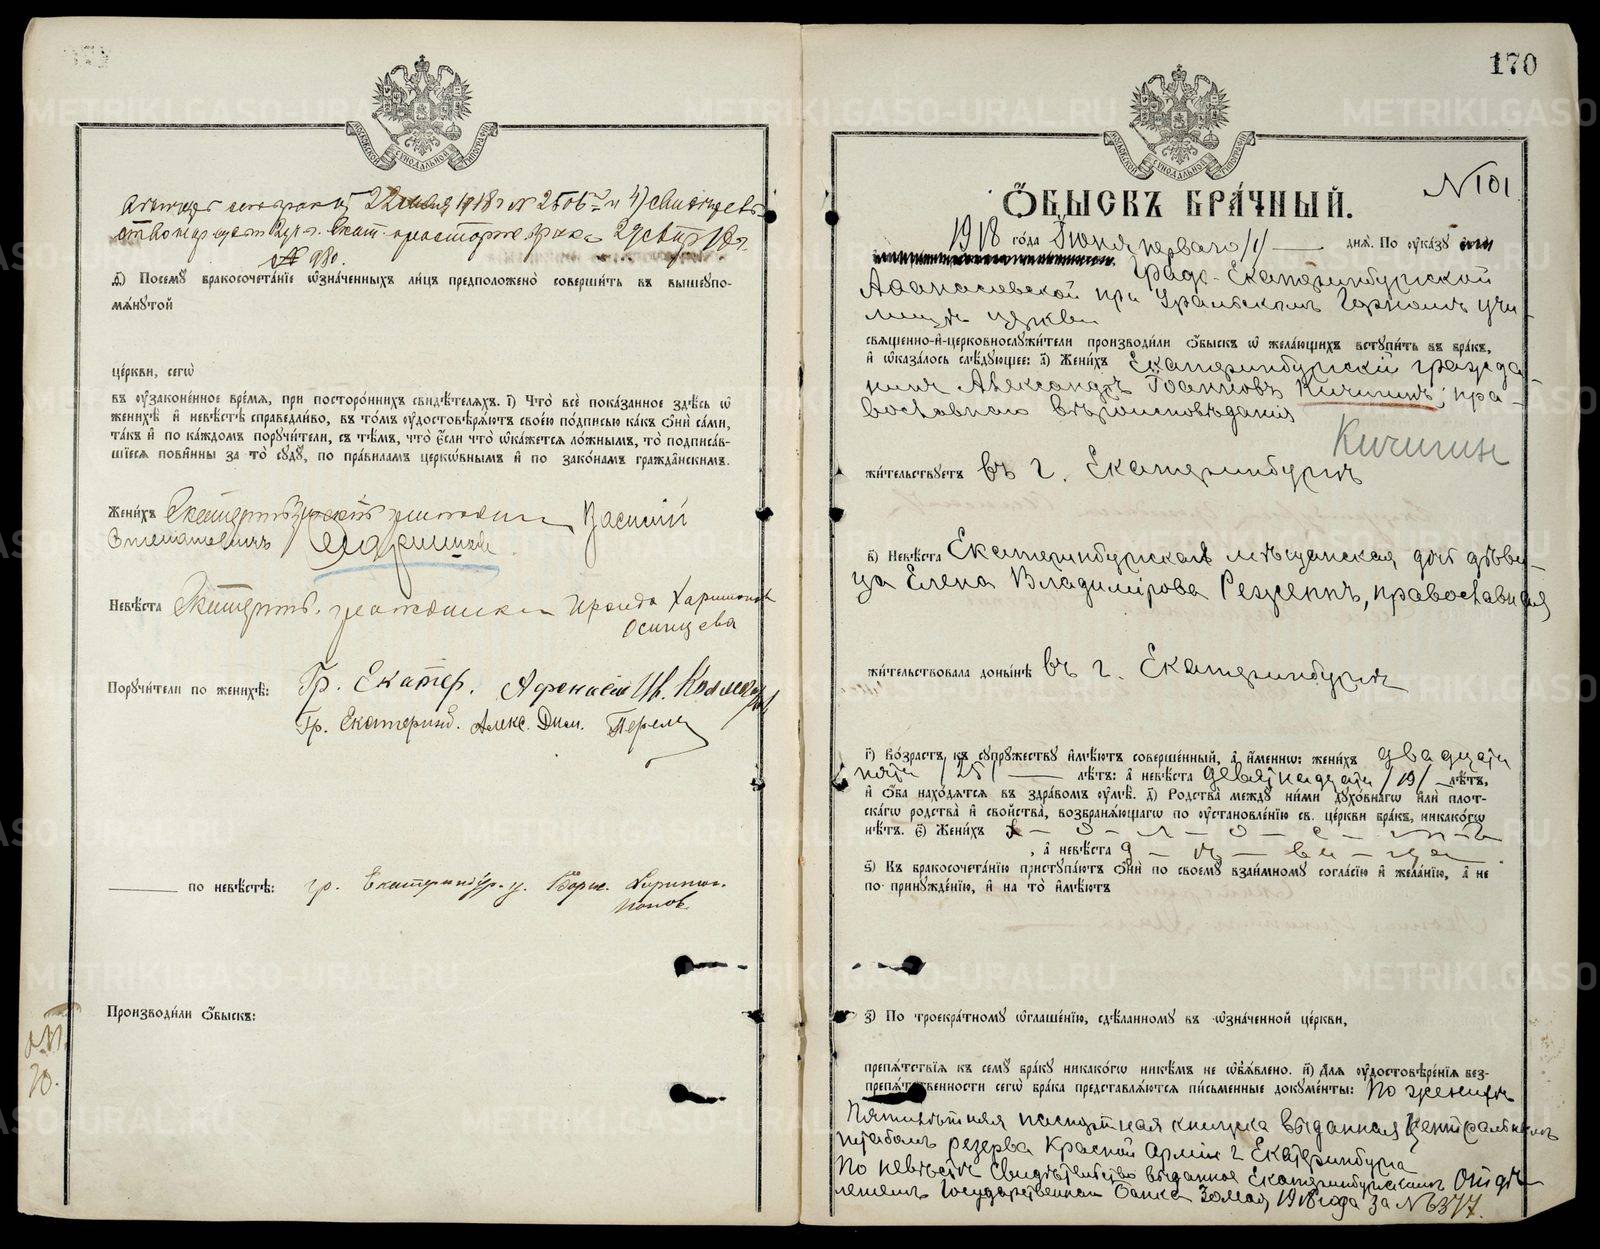 22 1918 г № 2606 и 4) свидетель-
ство 29 сент 18 г.
№ 980.
д) Посемꙋ бракосочета́нїе ѡ҆зна́ченныхъ ли́цъ предположено̀ соверши́ть въ вышеꙋпо-
мѧ́нꙋтой
це́ркви, сегѡ̀
въ ᲂу҆зако́ненное вре́мѧ, при посторо́ннихъ свидѣ́телѧхъ. і҃) Что̀ всѐ пока́занное здѣ́сь ѡ҆
женихѣ̀ и҆ невѣ́стѣ справедли́во, въ то́мъ ᲂу҆достовѣрѧ́ютъ свое́ю по́дписью ка́къ ѻ҆нѝ са́ми,
та́къ и҆ по ка́ждомъ порꙋчи́тели, съ тѣ́мъ, что̀ є҆́сли что̀ ѡ҆ка́жетсѧ ло́жнымъ, то̀ подписа́в-
шїесѧ пови́нны за то̀ сꙋдꙋ̀, по пра́виламъ церко́внымъ и҆ по зако́намъ гражда́нскимъ.
Жени́хъ Василий
Невѣ́ста Ираида Харитонов
Осинцева
Порꙋчи́тели по женихѣ̀: Гр. Екатер. Афанасий Ив.
Гр. Екатеринб. Алекс. Дим.
по невѣ́стѣ: гр. Екатеринбур. Борис
Попов.
Производи́ли ѻ҆́быскъ:
170
№ 101
Ѻ҆́БЫСКЪ БРА́ЧНЫЙ.
1918 го́да Іюня перваго /1/ днѧ̀. По ᲂу҆ка́зꙋ
Градо-Екатеринбургской
Аѳанасіевской при Уральскомъ Горномъ учи-
лищѣ церкви
свѧще́нно-и҆-церковнослꙋжи́тели производи́ли ѻ҆́быскъ ѡ҆ жела́ющихъ встꙋпи́ть въ бра́къ,
и҆ ѡ҆каза́лось слѣ́дꙋющее: а҃) Жени́хъ Екатеринбургскій гражда-
нинъ Александръ Іоанновъ Кичигинъ; пра-
вославнаго вѣроисповѣданія
Кичигин
жи́тельствꙋетъ въ г. Екатеринбургѣ
в҃) Невѣ́ста Екатеринбургская мѣщанская дочь дѣви-
ца Елена Владимірова, православная
жи́тельствовала доны́нѣ въ г. Екатеринбургѣ
г҃) Во́зрастъ къ сꙋпрꙋ́жествꙋ и҆мѣ́ютъ соверше́нный, а҆ и҆́менно: жени́хъ двадцати
пяти /25/ лѣ́тъ: а҆ невѣ́ста девятнадцати /19/ лѣ́тъ,
и҆ ѻ҆́ба нахо́дѧтсѧ въ здра́вомъ ᲂу҆мѣ̀. д҃) Родства̀ междꙋ ни́ми дꙋхо́внагѡ и҆лѝ плот-
ска́гѡ родства̀ и҆ сво́йства, возбранѧ́ющагѡ по ᲂу҆становле́нїю св. це́ркви бра́къ, никако́гѡ
нѣ́тъ. є҃) Жени́хъ х – о – л – о – с – т – ъ
, а҆ невѣ́ста д – ѣ – ви – ца.
ѕ҃) Къ бракосочета́нїю пристꙋпа́ютъ ѻ҆нѝ по своемꙋ̀ взаи́мномꙋ согла́сїю и҆ жела́нїю, а҆ не
по принꙋжде́нїю, и҆ на то̀ и҆мѣ́ютъ
з҃) По троекра́тномꙋ ѡ҆глаше́нїю, сдѣ́ланномꙋ въ ѡ҆зна́ченной це́ркви,
препѧ́тствїѧ къ семꙋ̀ бра́кꙋ никако́гѡ никѣ́мъ не ѡ҆б̾ѧ́влено. и҃) Длѧ̀ ᲂу҆достовѣре́нїѧ без-
препѧ́тственности сегѡ̀ бра́ка представлѧ́ютсѧ пи́сьменные докꙋме́нты: По женихѣ
Пятилѣтняя паспортная книжка выданная Центральнымъ
штабомъ резерва Красной Арміи г. Екатеринбурга
По невѣстѣ Свидѣтельство выданное Екатеринбургскимъ Отдѣ-
леніемъ Государственнаго банка 30 мая 1918 года за № 6377.